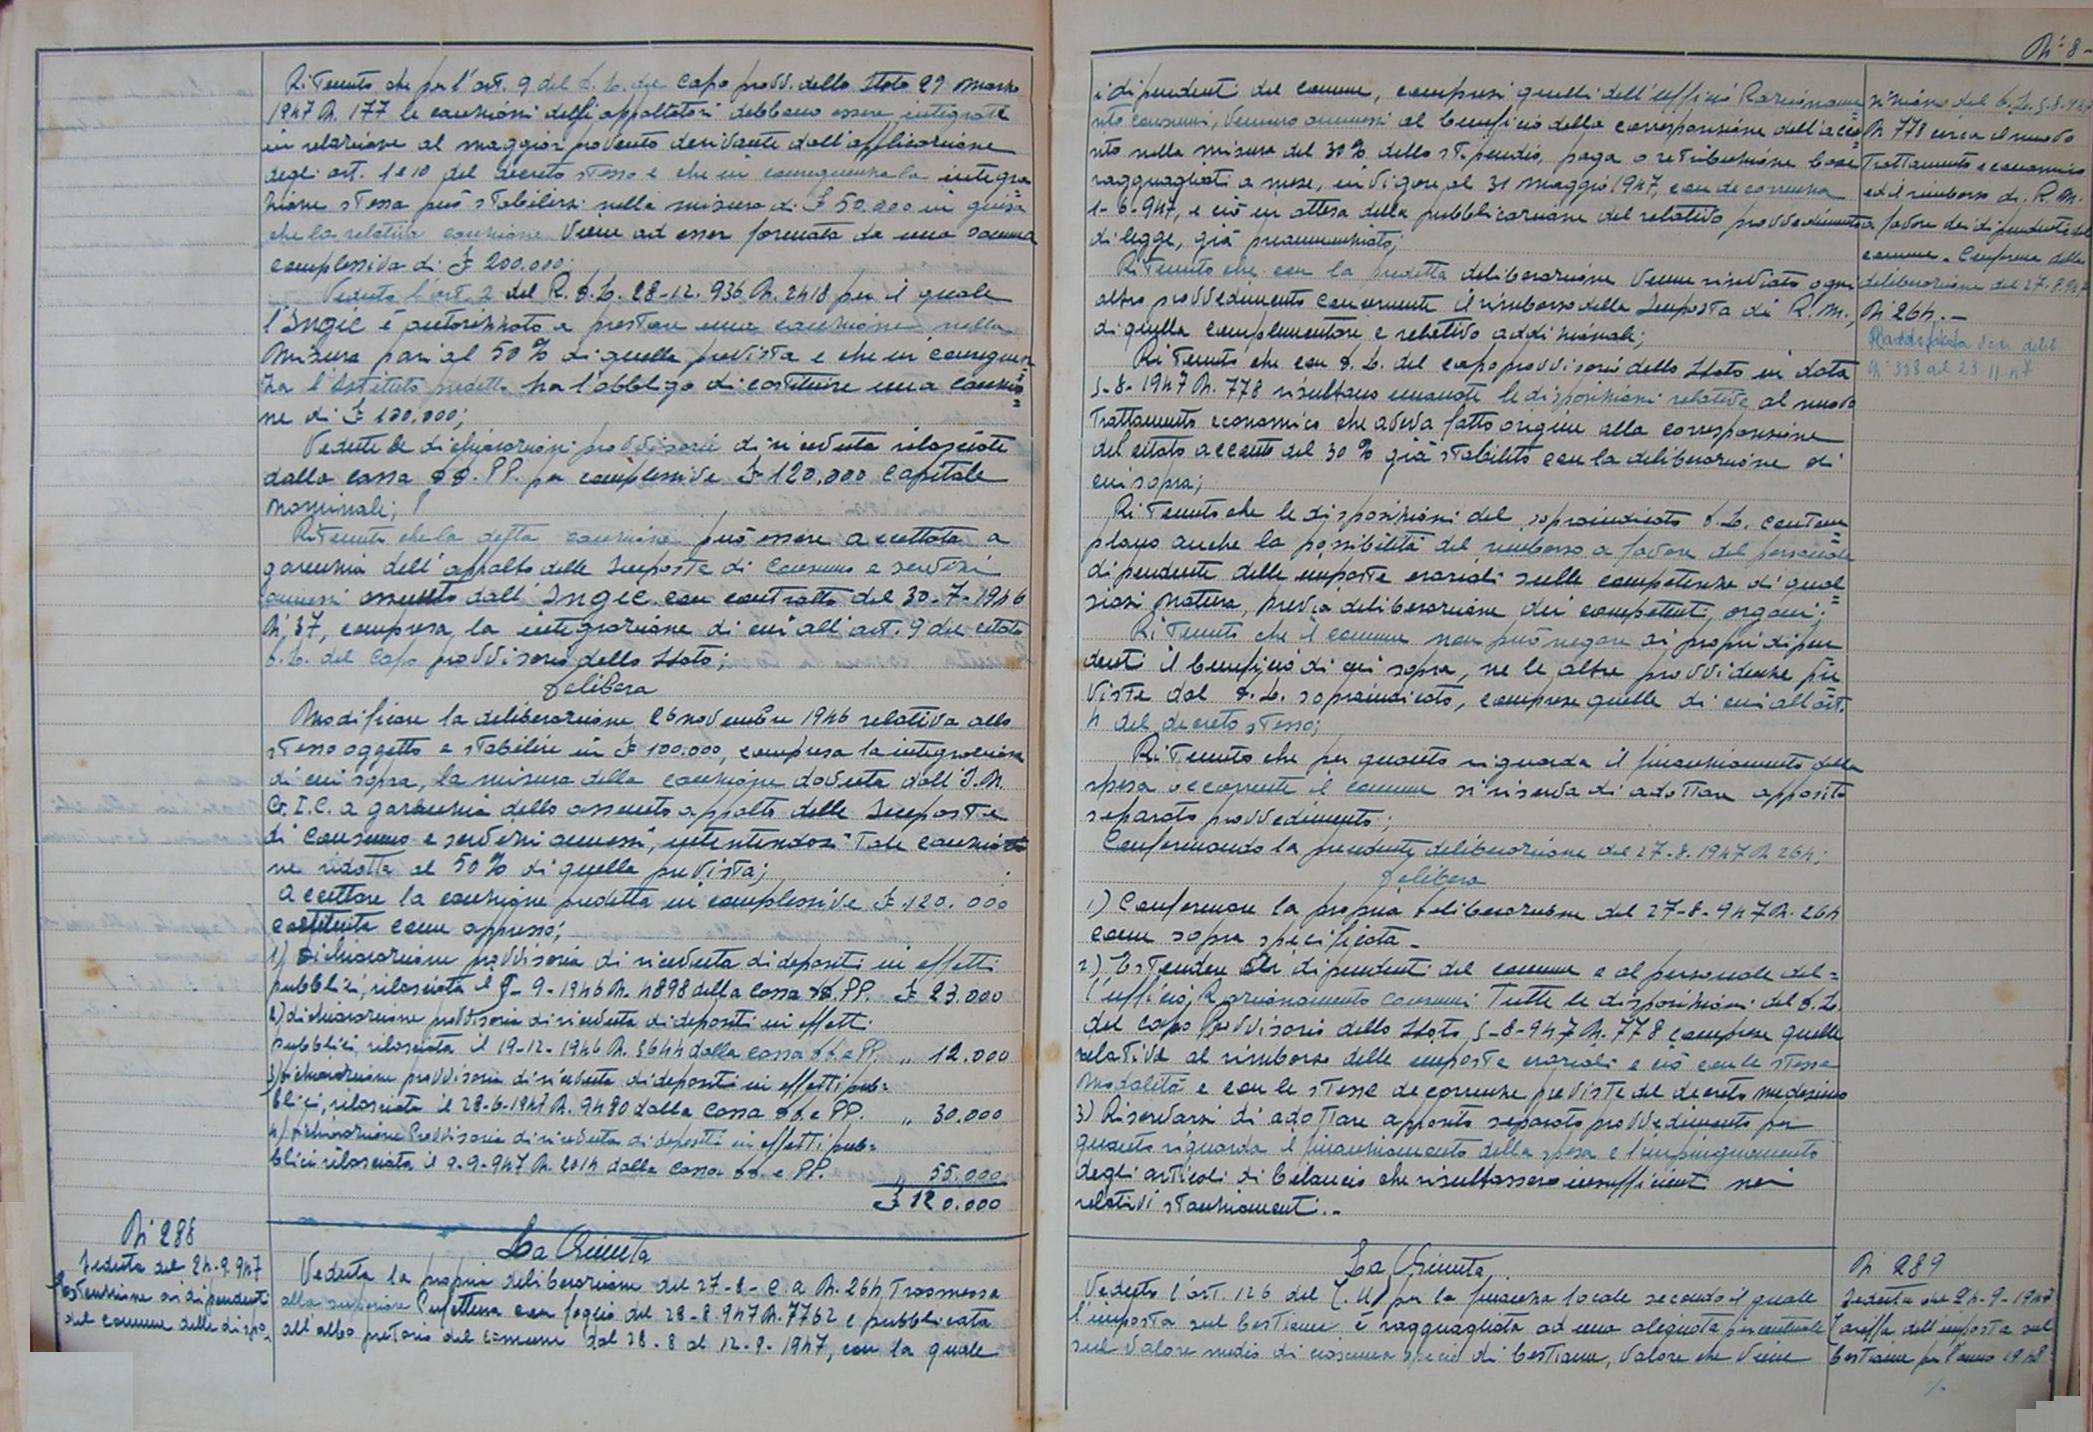 Ritenuto che per l'art. 9 del D.L. del Capo provv. dello Stato 29 marzo
1947 N. 177 le cauzioni degli appaltatori debbano essere integrate
in relazione al maggior provento derivante dall'applicazione
degli art. 1 e 10 del decreto stesso e che in conseguenza la integra=
zione stessa può stabilirsi nella misura di £ 50.000 in guisa
che la relativa cauzione viene ad esser formata da una somma
complessiva di £ 200.000.
Veduto l'art. 2 del R.D.L. 28-12-936 N. 2418 per il quale
l'Ingic è autorizzato a prestare una cauzione nella
misura pari al 50% di quella prevista e che in conseguen=
za l'Istituto predetto ha l'obbligo di costituire una cauzio=
ne di £ 100.000;
Vedute le dichiarazioni provvisorie di ricevuta rilasciate
dalla Cassa DD. PP. per complessive £ 120.000 capitale
nominali;
Ritenuto che la detta cauzione può essere accettata a
garanzia dell'appalto delle Imposte di Consumo e servizi
annessi assunto dall'Ingic con contratto del 30-7-1946
N. 37, compresa la integrazione di cui all'art. 9 del citato
D.L. del Capo provvisorio dello Stato;
Delibera
Modificare la deliberazione 26 novembre 1946 relativa allo
stesso oggetto e stabilire in £ 100.000, compresa la integrazione
di cui sopra, la misura della cauzione dovuta dall'I.N.
G.I.C. a garanzia dello assunto appalto delle Imposte
di Consumo e servizi annessi, intentendosi tale cauzio
ne ridotta al 50% di quella prevista;
Accettare la cauzione predetta in complessive £ 120.000
costituita come appresso;
1) Dichiarazione provvisoria di ricevuta di depositi in effetti
pubblici, rilasciata il 9-9-1946 N. 4898 dalla Cassa DD. PP. £ 23.000
2) dichiarazione provvisoria di ricevuta di depositi in effetti
pubblici, rilasciata il 19-12-1946 N. 8644 dalla Cassa DD. e PP. „ 12.000
3) dichiarazione provvisoria di ricevuta di depositi in effetti pub=
blici, rilasciata il 28-6-1947 N. 9480 dalla Cassa DD. e PP. „ 30.000
4) dichiarazione provvisoria di ricevuta di depositi in effetti pub=
blici rilasciata il 9-9-947 N. 2014 dalla Cassa DD. e PP. „ 55.000
£ 120.000
N. 288
Seduta del 24-9-947
Estensione ai dipendenti
del comune delle dispo-
La Giunta
Veduta la propria deliberazione del 27-8-c.a. N. 264 trasmessa
alla superiore Prefettura con foglio del 28-8-947 N. 7762 e pubblicata
all'albo pretorio del comune dal 28-8 al 12-9-1947, con la quale
N. 8-
i dipendenti del comune, compresi quelli dell'ufficio Razioname=
nto Consumi, vennero ammessi al beneficio della corresponsione dell'acco=
nto nella misura del 30% dello stipendio, paga o retribuzione base
ragguagliati a mese, in vigore al 31 Maggio 1947, con decorrenza
1-6-947, e ciò in attesa della pubblicazione del relativo provvedimento
di legge, già preannunziato;
Ritenuto che con la predetta deliberazione venne rinviato ogni
altro provvedimento concernente il rimborso della Imposta di R.M.,
di quella complementare e relativo addizionali;
Ritenuto che con D.L. del capo provvisorio dello Stato in data
5-8-1947 N. 778 risultano emanate le disposizioni relative al nuovo
trattamento economico che aveva fatto origine alla corresponsione
del citato acconto del 30% già stabilito con la deliberazione di
cui sopra;
Ritenuto che le disposizioni del sopraindicato D.L. contem=
plano anche la possibilità del rimborso a favore del personale
dipendente delle imposte erariali sulle competenze di qual=
siasi natura, previa deliberazione dei competenti organi;
Ritenuto che il comune non può negare ai propri dipen
denti il beneficio di cui sopra, ne le altre provvidenze pre=
viste dal D.L. sopraindicato, comprese quelle di cui all'art.
4 del decreto stesso;
Ritenuto che per quanto riguarda il finanziamento della
spesa occorrente il comune si riserva di adottare apposito
separato provvedimento;
Confermando la precedente deliberazione del 27-8-1947 N. 264;
Delibera
1) Confermare la propria deliberazione del 27-8-947 N. 264
come sopra specificata.-
2) Estendere ai dipendenti del comune e al personale del=
l'ufficio Razionamento Consumi tutte le disposizioni del D.L.
del Capo Provvisorio dello Stato 5-8-947 N. 778 comprese quelle
relative al rimborso delle imposte erariali e ciò con le stesse
modalità e con le stesse decorrenze previste del decreto medesimo
3) Riservarsi di adottare apposito separato provvedimento per
quanto riguarda il finanziamento della spesa e l'impinguamento
degli articoli di bilancio che risultassero insufficienti nei
relativi stanziamenti.-
sizioni del D.L. 5-8-947
N 778 circa il nuovo
trattamento economico
ed il rimborso di R.M.
a favore dei dipendenti del
comune. Conferma della
deliberazione del 27.8.947
N 264.-
deli
N. 338 del 23.11.47
La Giunta
Veduto l'art. 126 del T.U. per la finanza locale secondo il quale
l'imposta sul bestiame è ragguagliata ad una aliquota percentuale
sul valore medio di ciascuna specie di bestiame, valore che viene
N 289
Seduta del 24-9-1947
Tariffa dell'imposta sul
bestiame per l'anno 1948